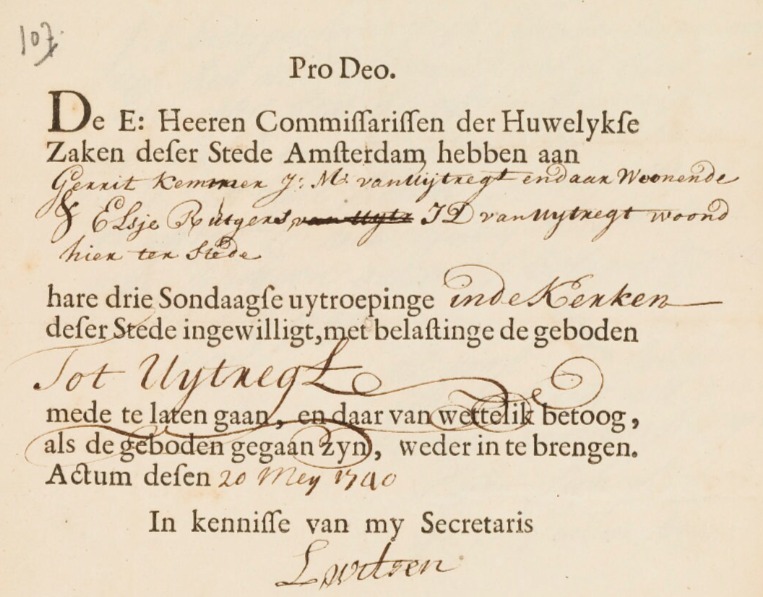 107.
Pro Deo.
De E: Heeren Commissarissen der Huwelykse
Zaken deser Stede Amsterdam hebben aan
Gerrit Kemmer J: M: van Uijtregt en daar Woonende
& Elsje Rutgers van Uytr JD van Uytregt woond
hier ter Stede
hare drie Sondaagse uytroepinge in de Kerken
deser Stede ingewilligt, met belastinge de geboden
Tot Uytregt
mede te laten gaan, en daar van wettelik betoog,
als de geboden gegaan zyn, weder in te brengen.
Actum desen 20 Mey 1740
In kennisse van my Secretaris
L witsen